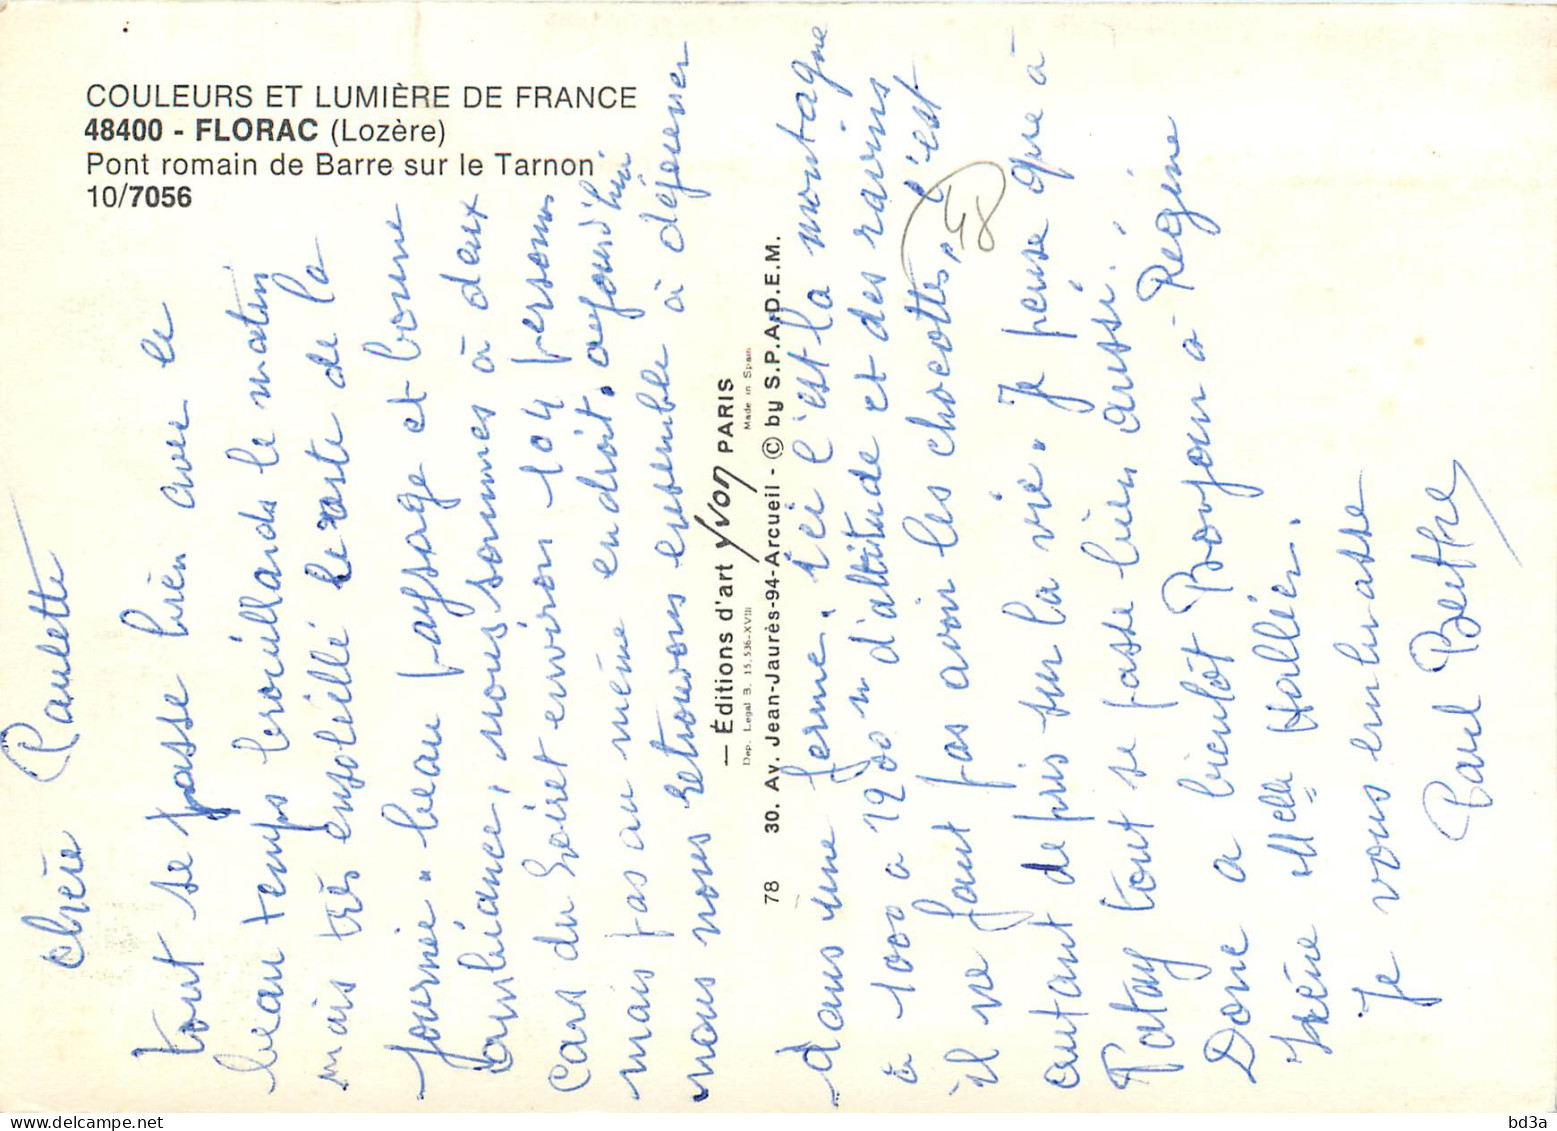 COULEURS ET LUMIÈRE DE FRANCE
48400 - FLORAC (Lozère)
Pont romain de Barre sur le Tarnon
10/7056
chère Paulette
tout se passe bien avec le
beau temps brouillards le matin
mais très ensoleillé le reste de la
journée. beau paysage et bonne
ambiance, nous sommes à deux
cars du Loiret environ 104 personnes
mais pas au même endroit. aujourd'hui
nous nous retrouvons ensemble à déjeuner
— Éditions d'art Yvon PARIS
Dep. Legal B. 15.536-XVIII Made in Spain
78 30. Av. Jean-Jaurès-94-Arcueil - © by S.P.A.D.E.M.
dans une ferme. ici c'est la montagne
à 1000 à 1200 m d'altitude et des ravins
il ne faut pas avoir les chocottes, c'est
48
autant de pris sur la vie. Je pense que à
Patay tout se passe bien aussi.
Donc à bientôt Bonjour à Régine
Irène Melle Hallier.
Je vous embrasse
Paul Berthe
bd3a